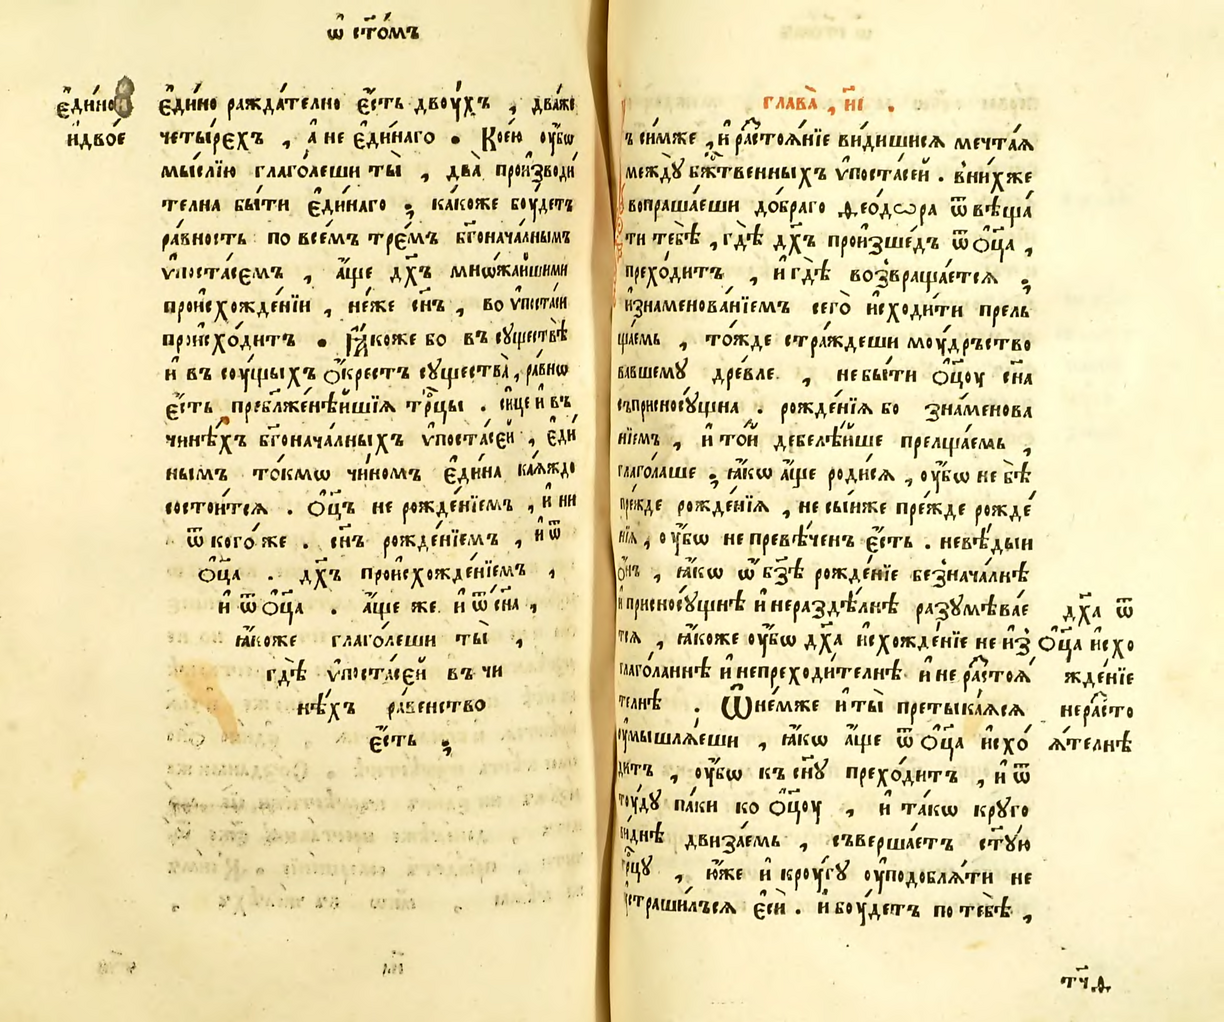 ѿ ст҃о́мъ
є҆ди́но
и҆двоѐ
є҆ди́но ражда́телно є҆́сть двоу́хъ , два́же
четы́рехъ , а҆ не є҆ди́наго . Ко́ею оу҆́бѡ
мы́слїю глаго́леши ты̀ , два̀ произво́ди
телна бы́ти є҆ди́наго ; ка́коже бо́удетъ
ра́вность по все́мъ тре́мъ бг҃онача́лнымъ
ѵ҆поста́семъ , а҆́ще дх҃ъ мно́жайшими
происхожде́нїи , не́же сн҃ъ , во ѵ҆поста́си
происхо́дитъ . Ꙗ҆́коже бо въ существѣ̀
и҆ въ со́ущыхъ о҆́крестъ существа̀ , ра́внѡ
є҆́сть пребл҃же́ннѣйшїѧ тр҃цы . си́це и҆ въ
чинѣ́хъ бг҃онача́лныхъ ѵ҆поста́сей , є҆ди́
нымъ то́кмѡ чи́номъ є҆ди́на ка́ѧждо
состои́тсѧ . ѻ҆ц҃ъ не рожде́нїемъ , и҆ ни
ѿ кого́ же . сн҃ъ рожде́нїемъ , и҆ ѿ
ѻ҆ц҃а . дх҃ъ происхожде́нїемъ ,
и҆ ѿ ѻ҆ц҃а . а҆́ще же и҆ ѿ сн҃а ,
ꙗ҆́коже глаго́леши ты̀ ,
гдѣ̀ ѵ҆поста́сей въ чи
нѣ́хъ ра́венство
є҆́сть ;
глава̀ , н҃і .
ъ си́мже , и҆ разстоѧ́нїе ви́дишисѧ мечта́ѧ
между̀ бж҃твенныхъ ѵ҆поста́сей . в ни́хже
вопраша́еши до́браго ѳео́дѡра ѿвѣща́
ти тебѣ̀ , гдѣ̀ дх҃ъ произше́дъ ѿ ѻ҆ц҃а ,
прехо́дитъ , и҆ гдѣ̀ возвраща́етсѧ ;
и҆ знаменова́нїемъ сего̀ и҆сходи́ти прель
ща́емь , то́жде стра́ждеши моу́дръство
вавшему дре́вле , не бы́ти ѻ҆ц҃оу сн҃а
съприсносу́щна . рожде́нїѧ бо знаменова
нїемъ , и҆ то́й дебелѣ́йше прелща́емь ,
глаго́лаше ; ꙗ҆́кѡ а҆́ще роди́сѧ , оу҆́бѡ не бѣ̀
пре́жде рожде́нїѧ , не сы́иже пре́жде рожде́
нїѧ , оу҆́бѡ не превѣ́ченъ є҆́сть . невѣ́дыи
ѻ҆́нъ , ꙗ҆́кѡ ѡ҆ бз҃ѣ рожде́нїе безнача́лнѣ
и҆ присносу́щнѣ и҆ нераздѣ́лнѣ разумѣва́е
тсѧ , ꙗ҆́коже оу҆́бѡ дх҃а и҆схожде́нїе неиз
глаго́ланнѣ и҆ непреходи́телнѣ и҆ не разстоѧ́
телнѣ . Ѿ не́мже и҆ ты̀ претыка́ѧсѧ
оу҆мышлѧ́еши , ꙗ҆́кѡ а҆́ще ѿ ѻ҆ц҃а и҆схо́
дитъ , оу҆́бѡ къ сн҃у прехо́дитъ , и҆ ѿ
то́уду па́ки ко ѻ҆ц҃оу , и҆ та́кѡ круго
ви́днѣ движа́емь , съверша́етъ ст҃у́ю
тр҃цу , ю҆́же и҆ кро́угу оу҆подоблѧ́ти не
оу҆страши́лъсѧ є҆сѝ . и҆ бо́удетъ по тебѣ̀ ,
дх҃а ѿ
ѻ҆ц҃а и҆схо
жде́нїе
нера́сто
ѧ́телнѣ
тч҃ѳ